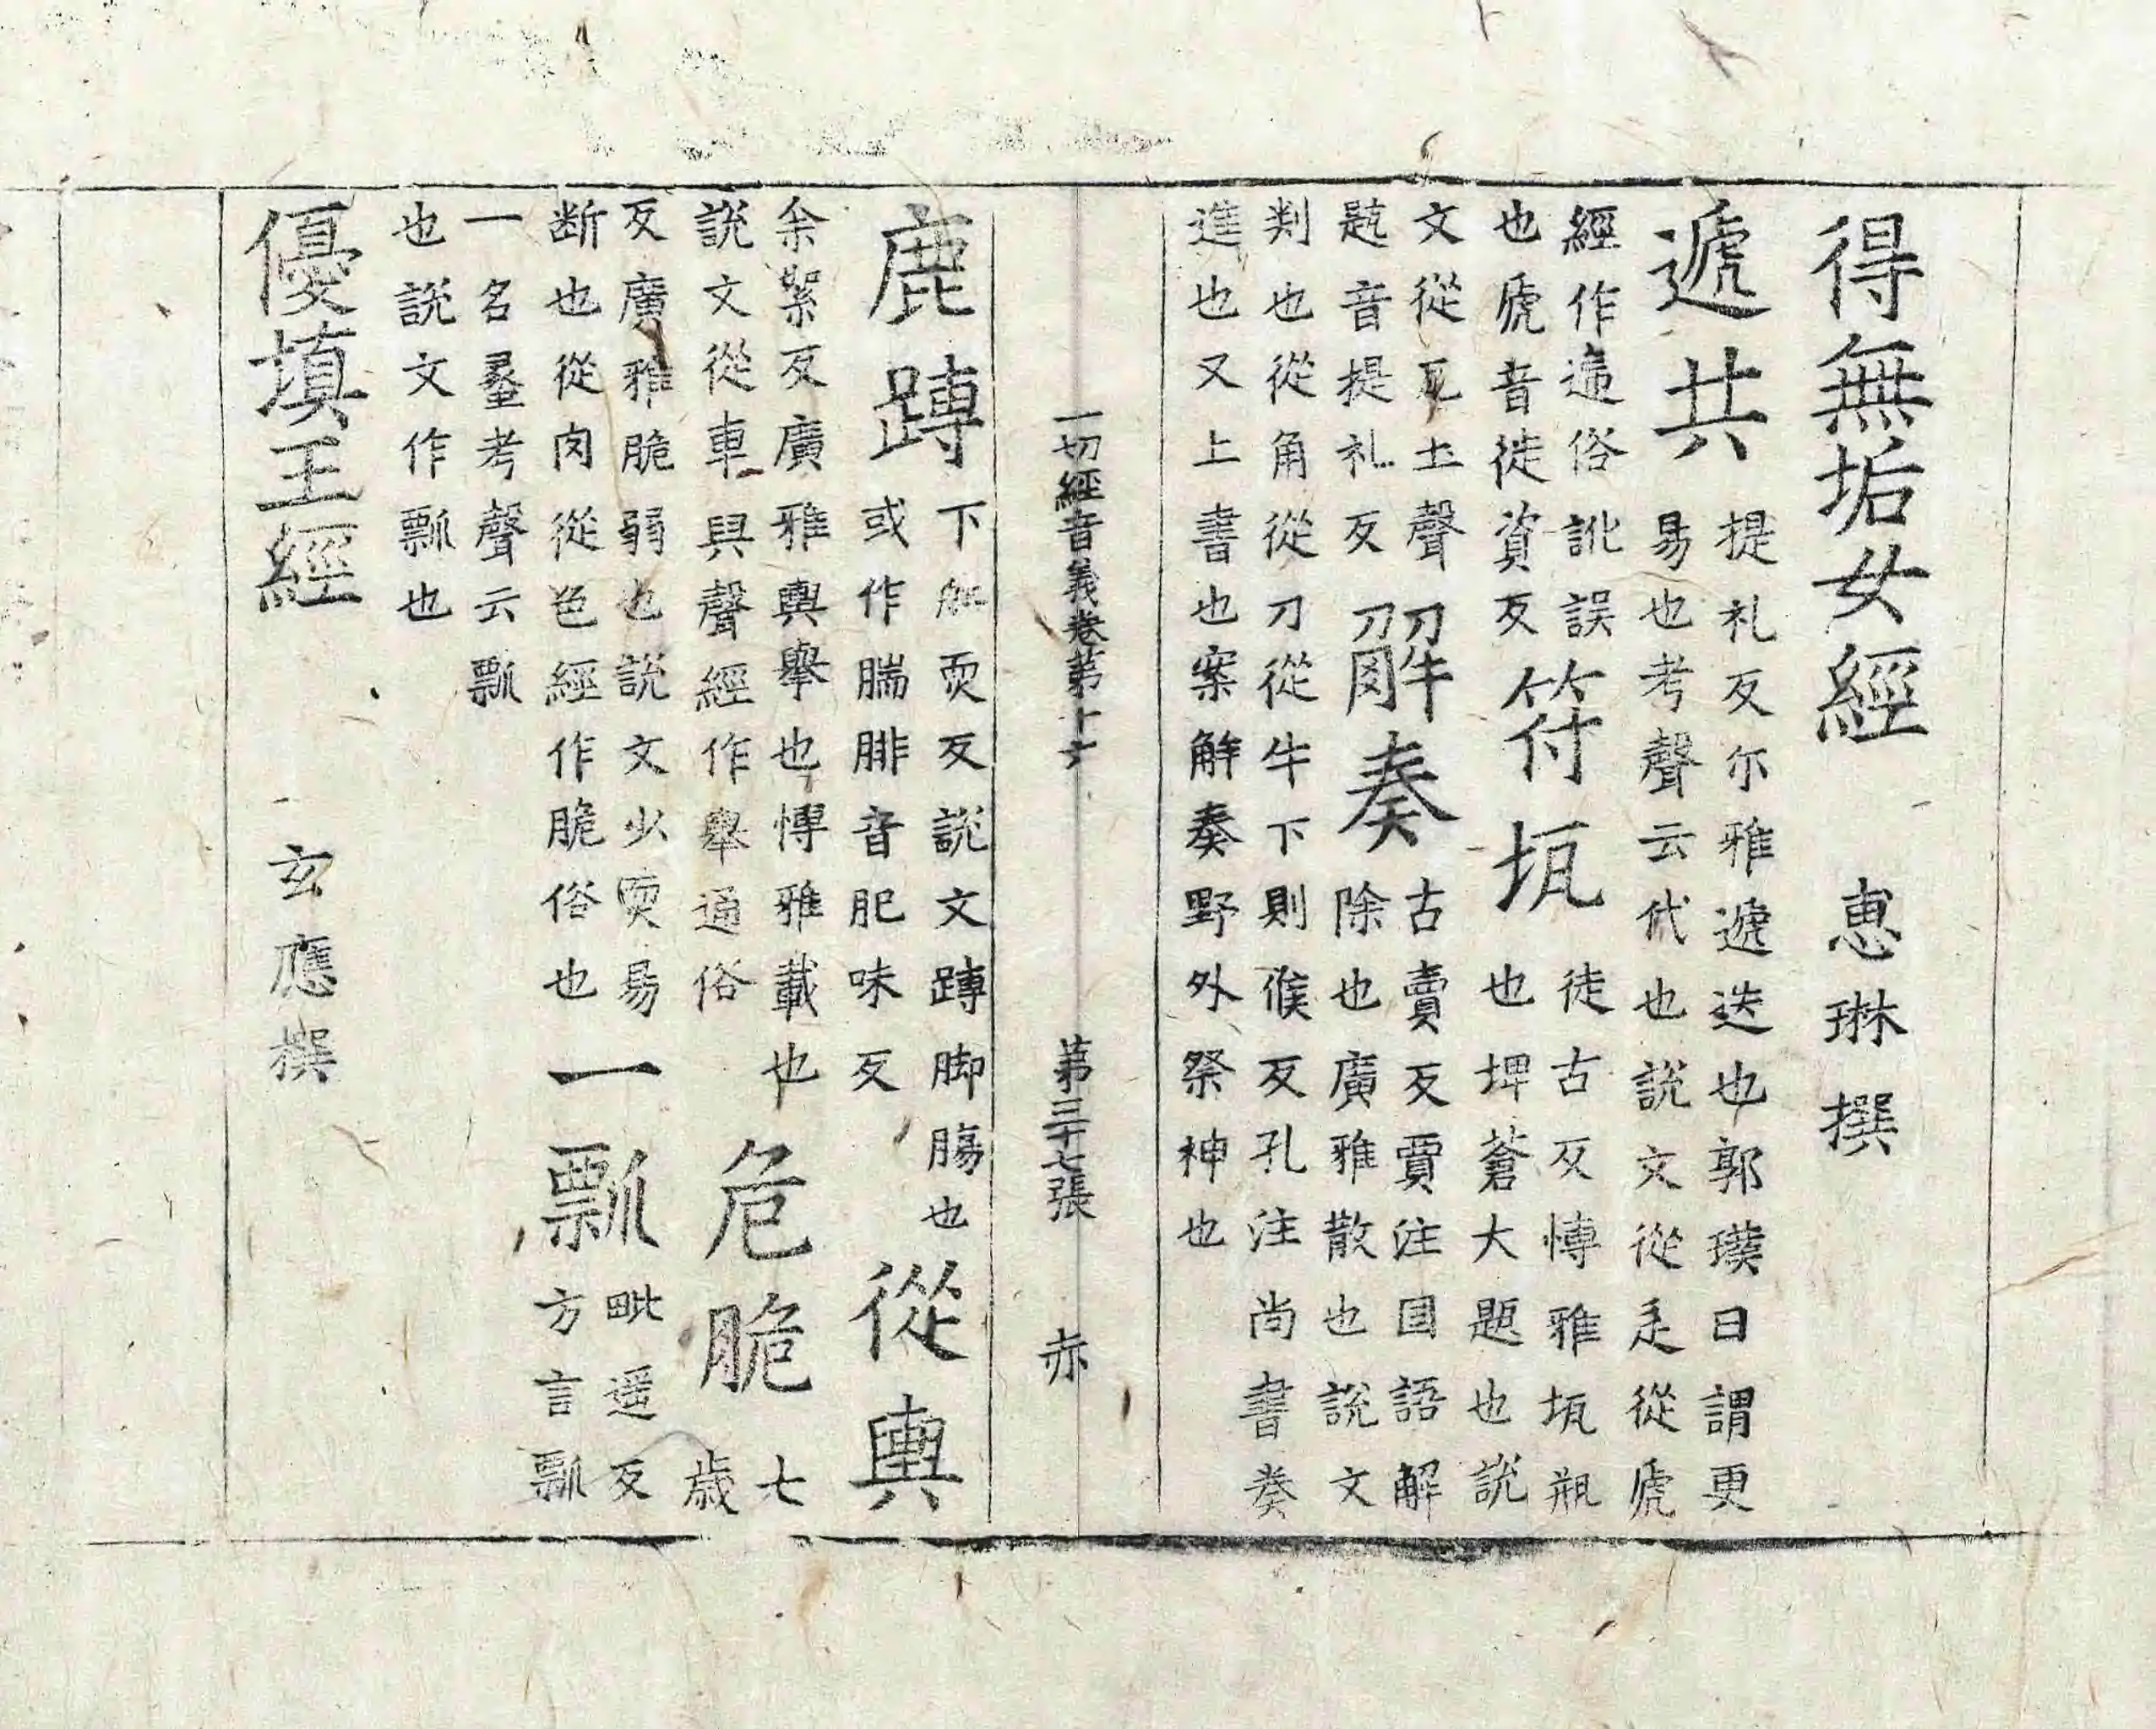 得無垢女經　惠琳撰
遞共
提礼反尔雅遞迭也郭璞曰謂更
易也考聲云代也說文從辵從虒
經作逓俗訛誤
也虒音徙資反
符㼛
徒古反博雅㼛瓶
也埤蒼大題也說
文從瓦土聲
題音提礼反
解奏
古賣反賈注囯語解
除也廣雅散也說文
判也從角從刀從牛下則候反孔注尚書奏
進也又上書也案解奏野外祭神也
一切經音義卷第十六　第三十七張　赤
鹿𨄔
下船耎反說文𨄔脚腸也
或作腨腓音肥味反
從轝
余絮反廣雅轝舉也博雅載也
說文從車與聲經作舉通俗
危脆
七
歲
反廣雅脆弱也說文少耎易
断也從肉從色經作脆俗也
一瓢
毗遥反
方言瓢
一名蠡考聲云瓢
也說文作瓢也
優填王經　玄應撰